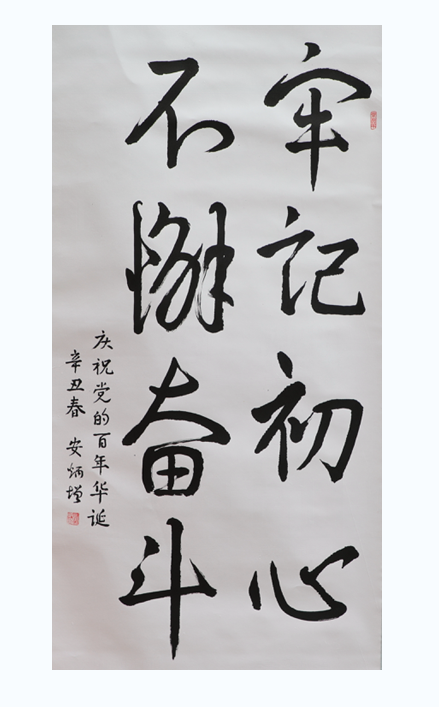 牢记初心
不懈奋斗
庆祝党的百年华诞
辛丑春 安炳墡